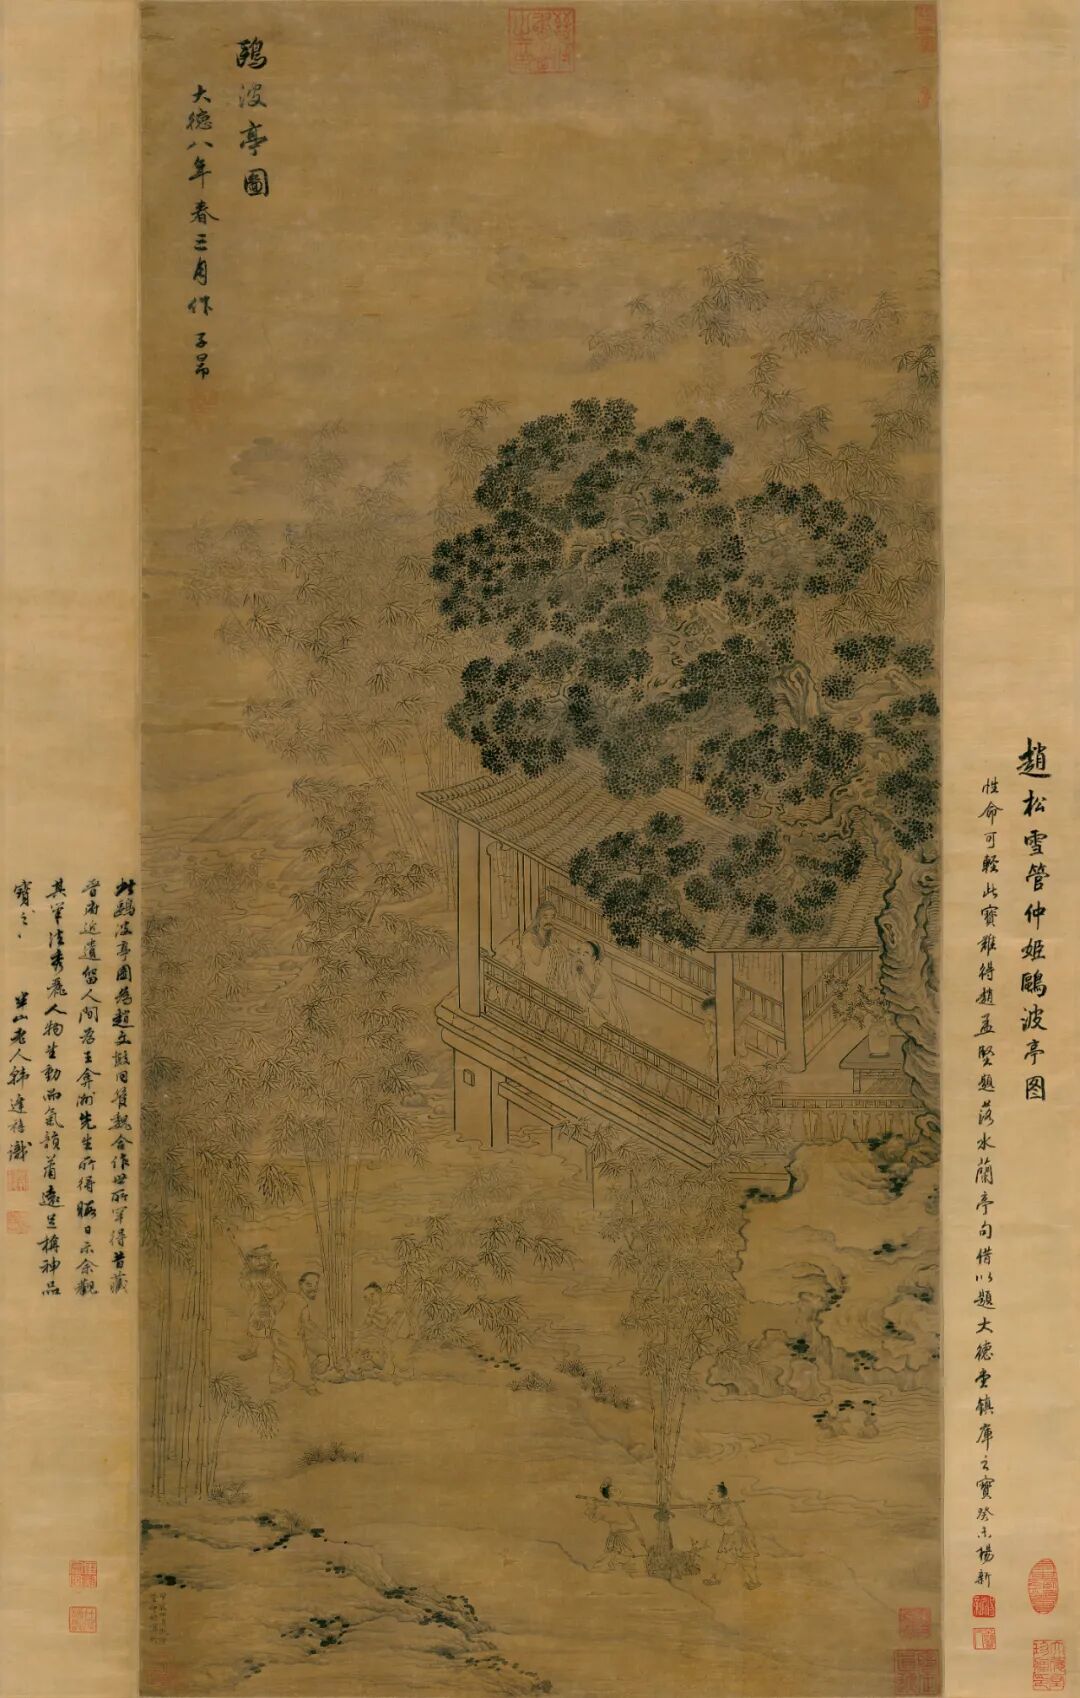 鷗波亭圖
大德八年春三月作 子昂
趙松雪管仲姬鷗波亭图
性命可輕此寶難得趙孟堅題落水蘭亭句借以題大德堂鎮庫之寶癸未楊新
此鷗波亭圖為趙文敏同管魏合作世所罕得昔藏
晉府近遺留人間為王弇州先生所得暇日示余觀
其筆法秀麗人物生動而氣韻蕭遠足稱神品
寶之
半山老人韓逢禧識